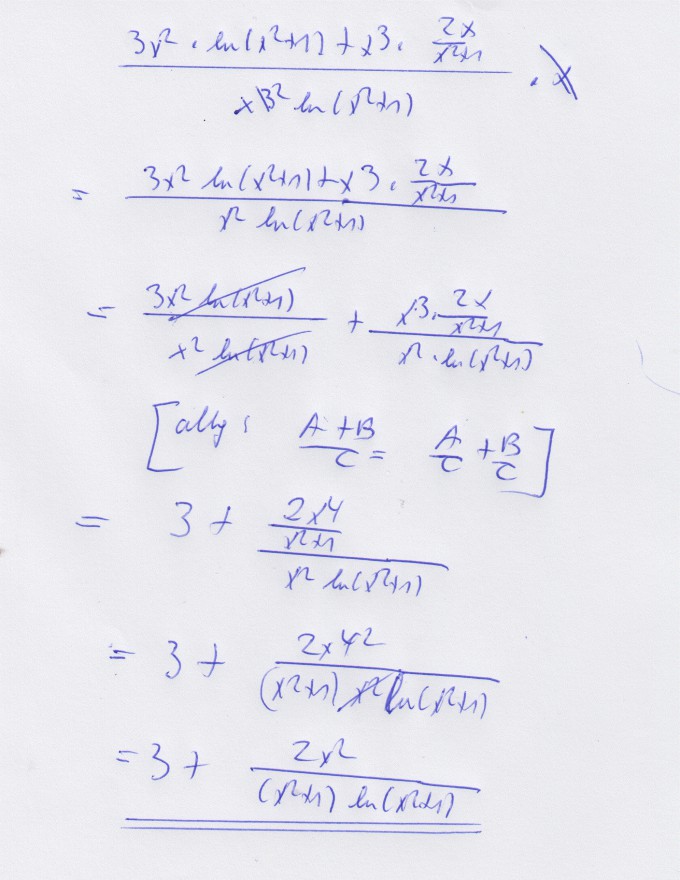 3x² · ln(x²+1) + x³ · 2x/(x²+1) / x³² ln(x²+1) · x
= 3x² ln(x²+1) + x³ · 2x/(x²+1) / x² ln(x²+1)
= 3x² ln(x²+1) / x² ln(x²+1) + x³ · 2x/(x²+1) / x² · ln(x²+1)
[allg: A+B/C = A/C + B/C]
= 3 + 2x⁴/(x²+1) / x² ln(x²+1)
= 3 + 2x⁴² / (x²+1) x² ln(x²+1)
= 3 + 2x² / (x²+1) ln(x²+1)